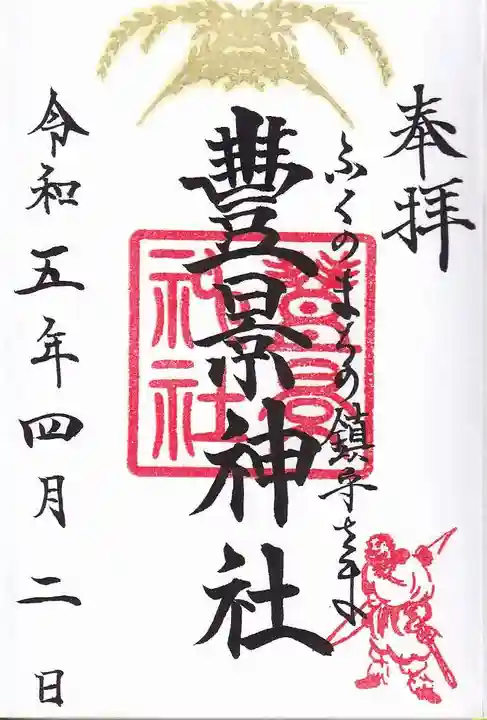 奉拝
ふくのまちの鎮守さま
豐景神社
豐景神社
令和五年四月二日